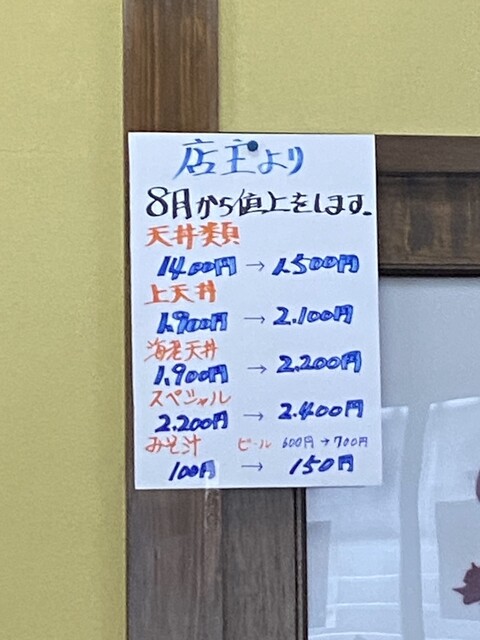 店主より
8月から値上をします。
天丼類
1400円 → 1,500円
上天丼
1,900円 → 2.100円
海老天丼
1,900円 → 2,200円
スペシャル
2.200円 → 2.400円
みそ汁 ビール 600円→700円
100円 → 150円